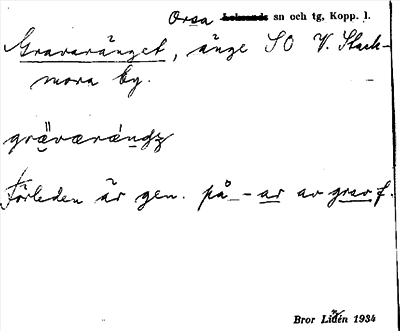 Orsa Leksands sn och tg, Kopp. l.
Gravaränget, änge SO V. Stack-
mora by.
Förleden är gen. på -ar av grav f.
Bror Lidén 1934